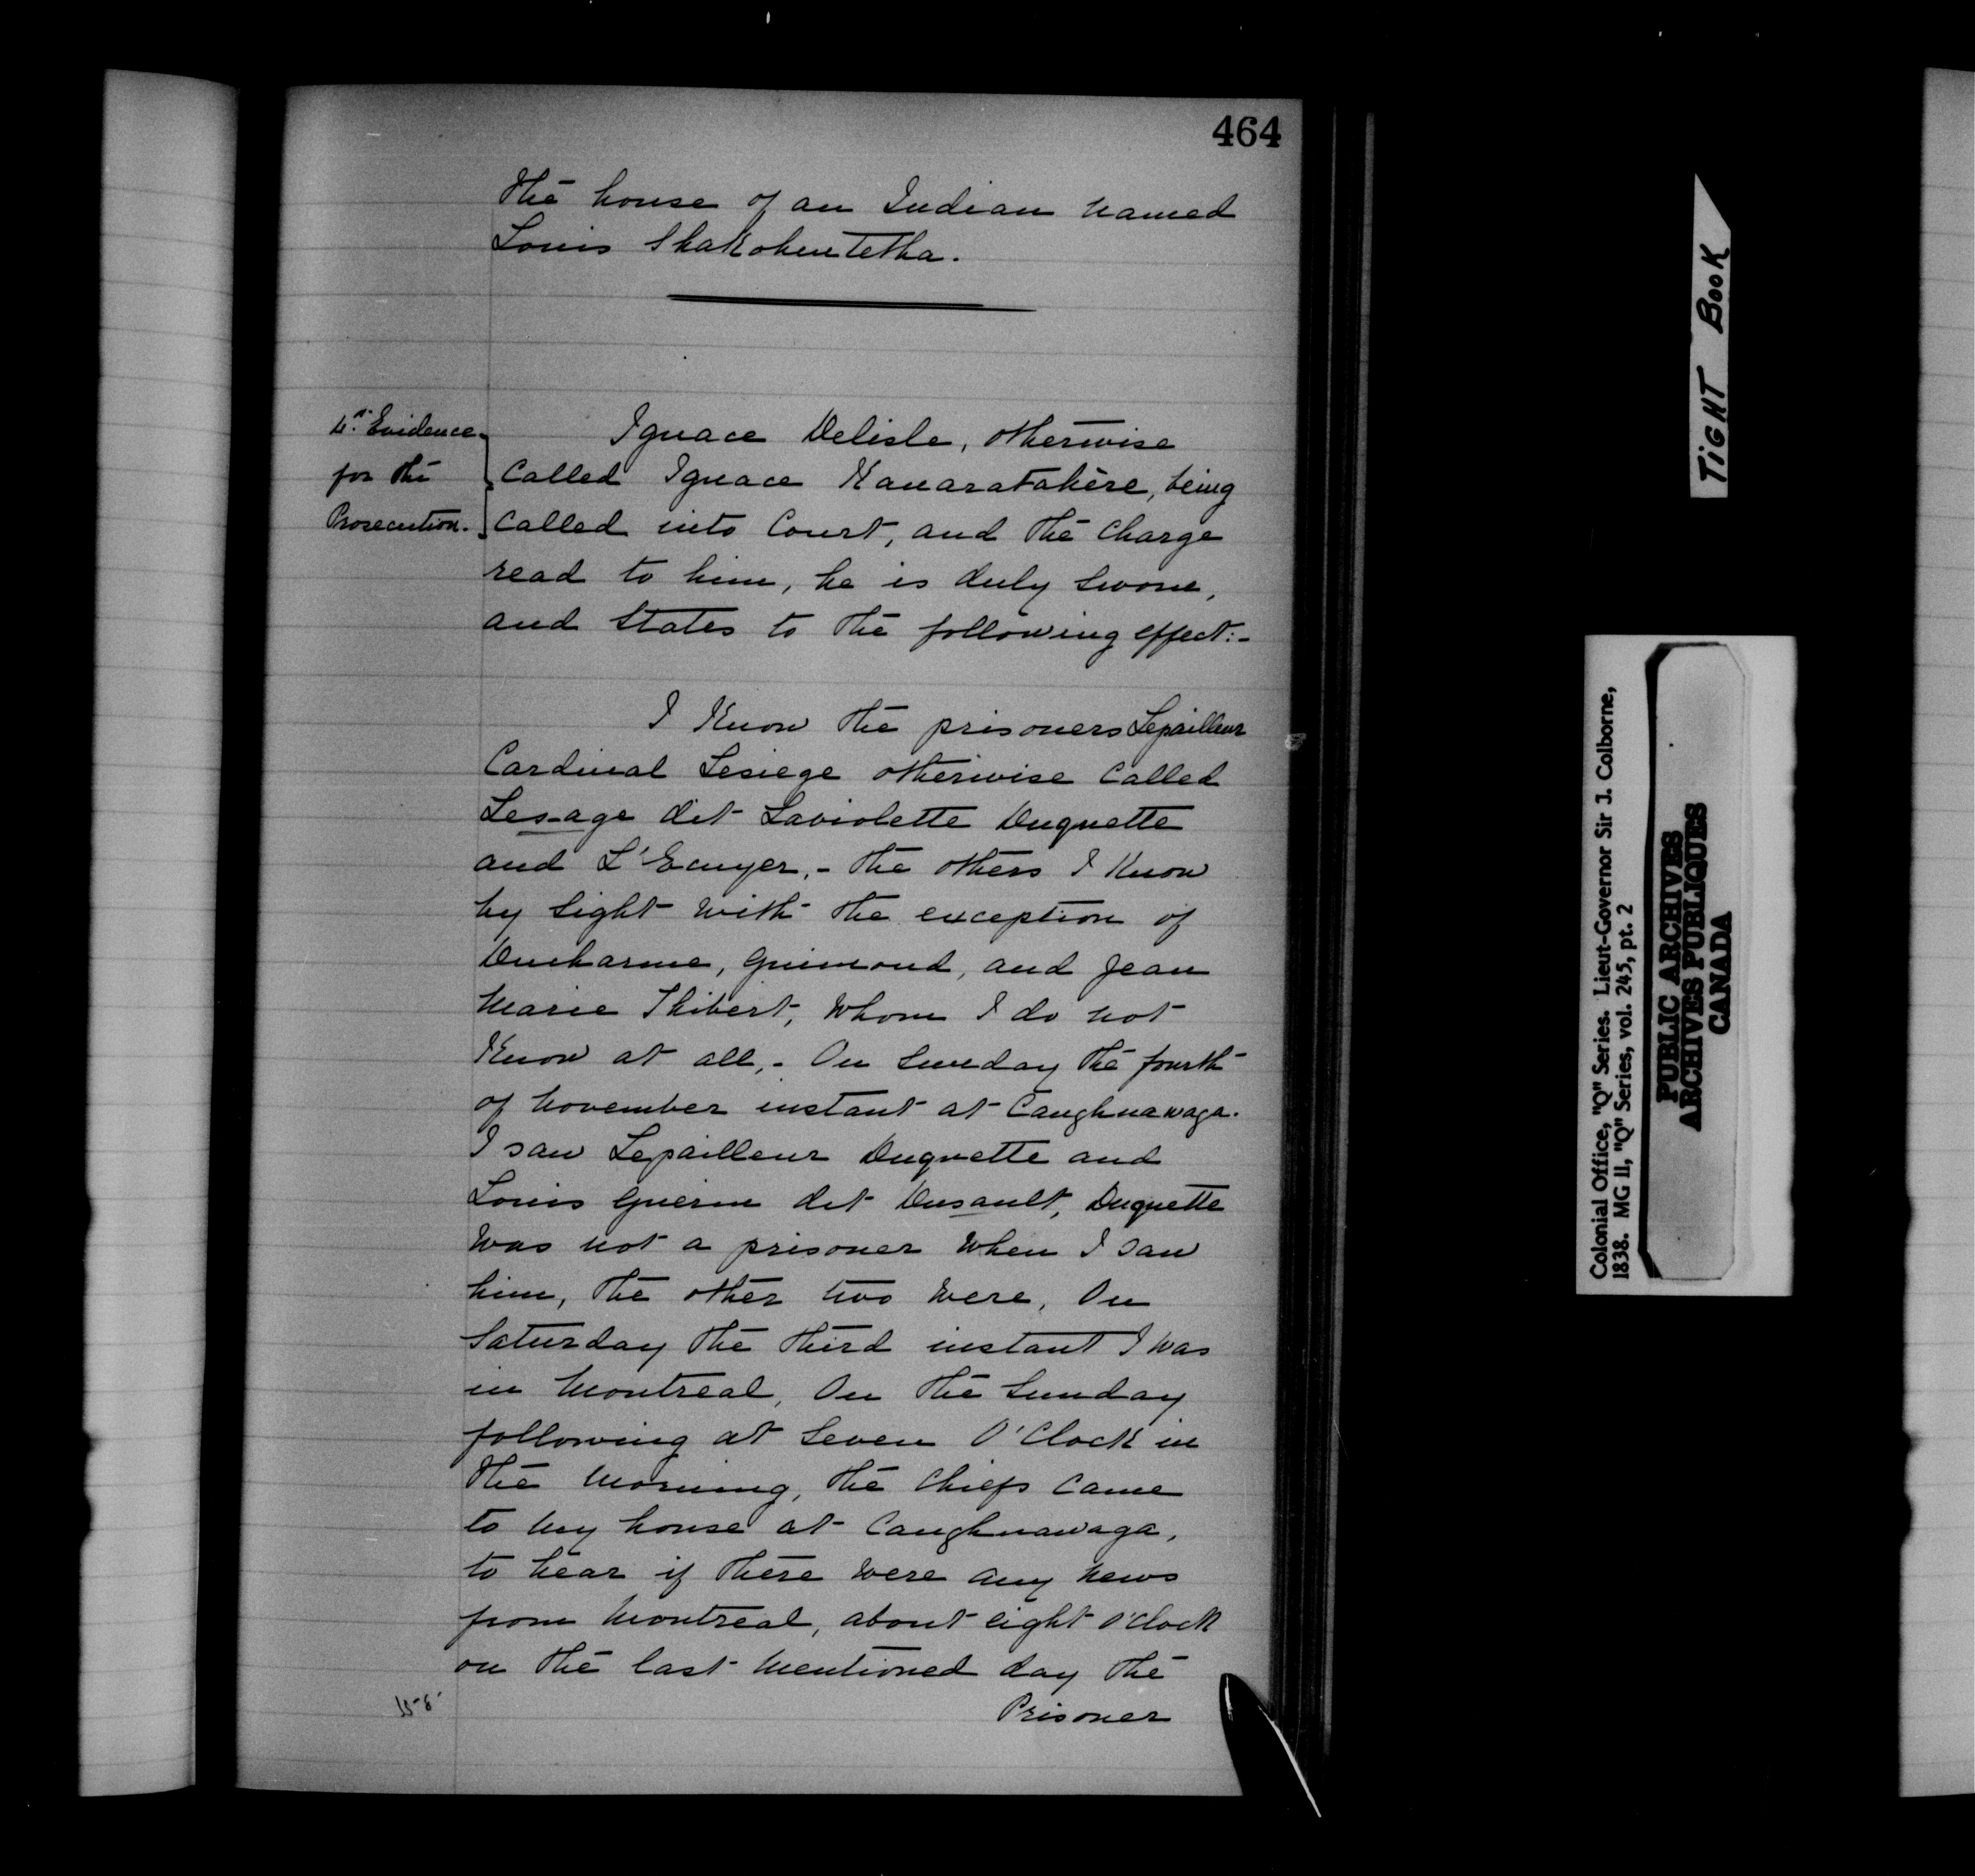 464
The house of an Indian named
Louis Shakohentetha.
4th Evidence
for the
Prosecution.
Ignace Delisle, otherwise
Called Ignace Kanaratakere, being
Called into Court, and the Charge
read to him, he is duly Sworn,
and States to the following effect:-
I Know the prisoners Lepailleur
Cardinal Lesiege otherwise Called
Lesage dit Laviolette Duquette
and L'Ecuyer,- the others I Know
by Sight with the exception of
Ducharme, Guimond, and Jean
Marie Thibert, whom I do not
Know at all,- On Sunday the fourth
of November instant at Caughnawaga.
I saw Lepailleur Duquette and
Louis Guerin dit Dusault, Duquette
was not a prisoner when I saw
him, the other two were, On
Saturday the third instant I was
in Montreal, On the Sunday
following at Seven O'Clock in
the Morning, the Chiefs Came
to my house at Caughnawaga,
to hear if there were any news
from Montreal, about eight o'Clock
on the last mentioned day the
Prisoner
TIGHT BOOK
Colonial Office, "Q" Series. Lieut-Governor Sir J. Colborne,
1838. MG 11, "Q" Series, vol. 245, pt. 2
PUBLIC ARCHIVES
ARCHIVES PUBLIQUES
CANADA